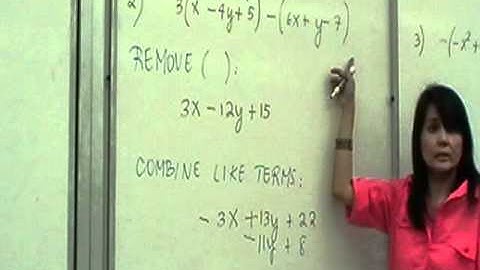 2) 3(x - 4y + 5) - (6x + y - 7)
REMOVE ( ):
3x - 12y + 15
COMBINE LIKE TERMS:
- 3x + 13y + 22
- 11y + 8
3) -(-x²+